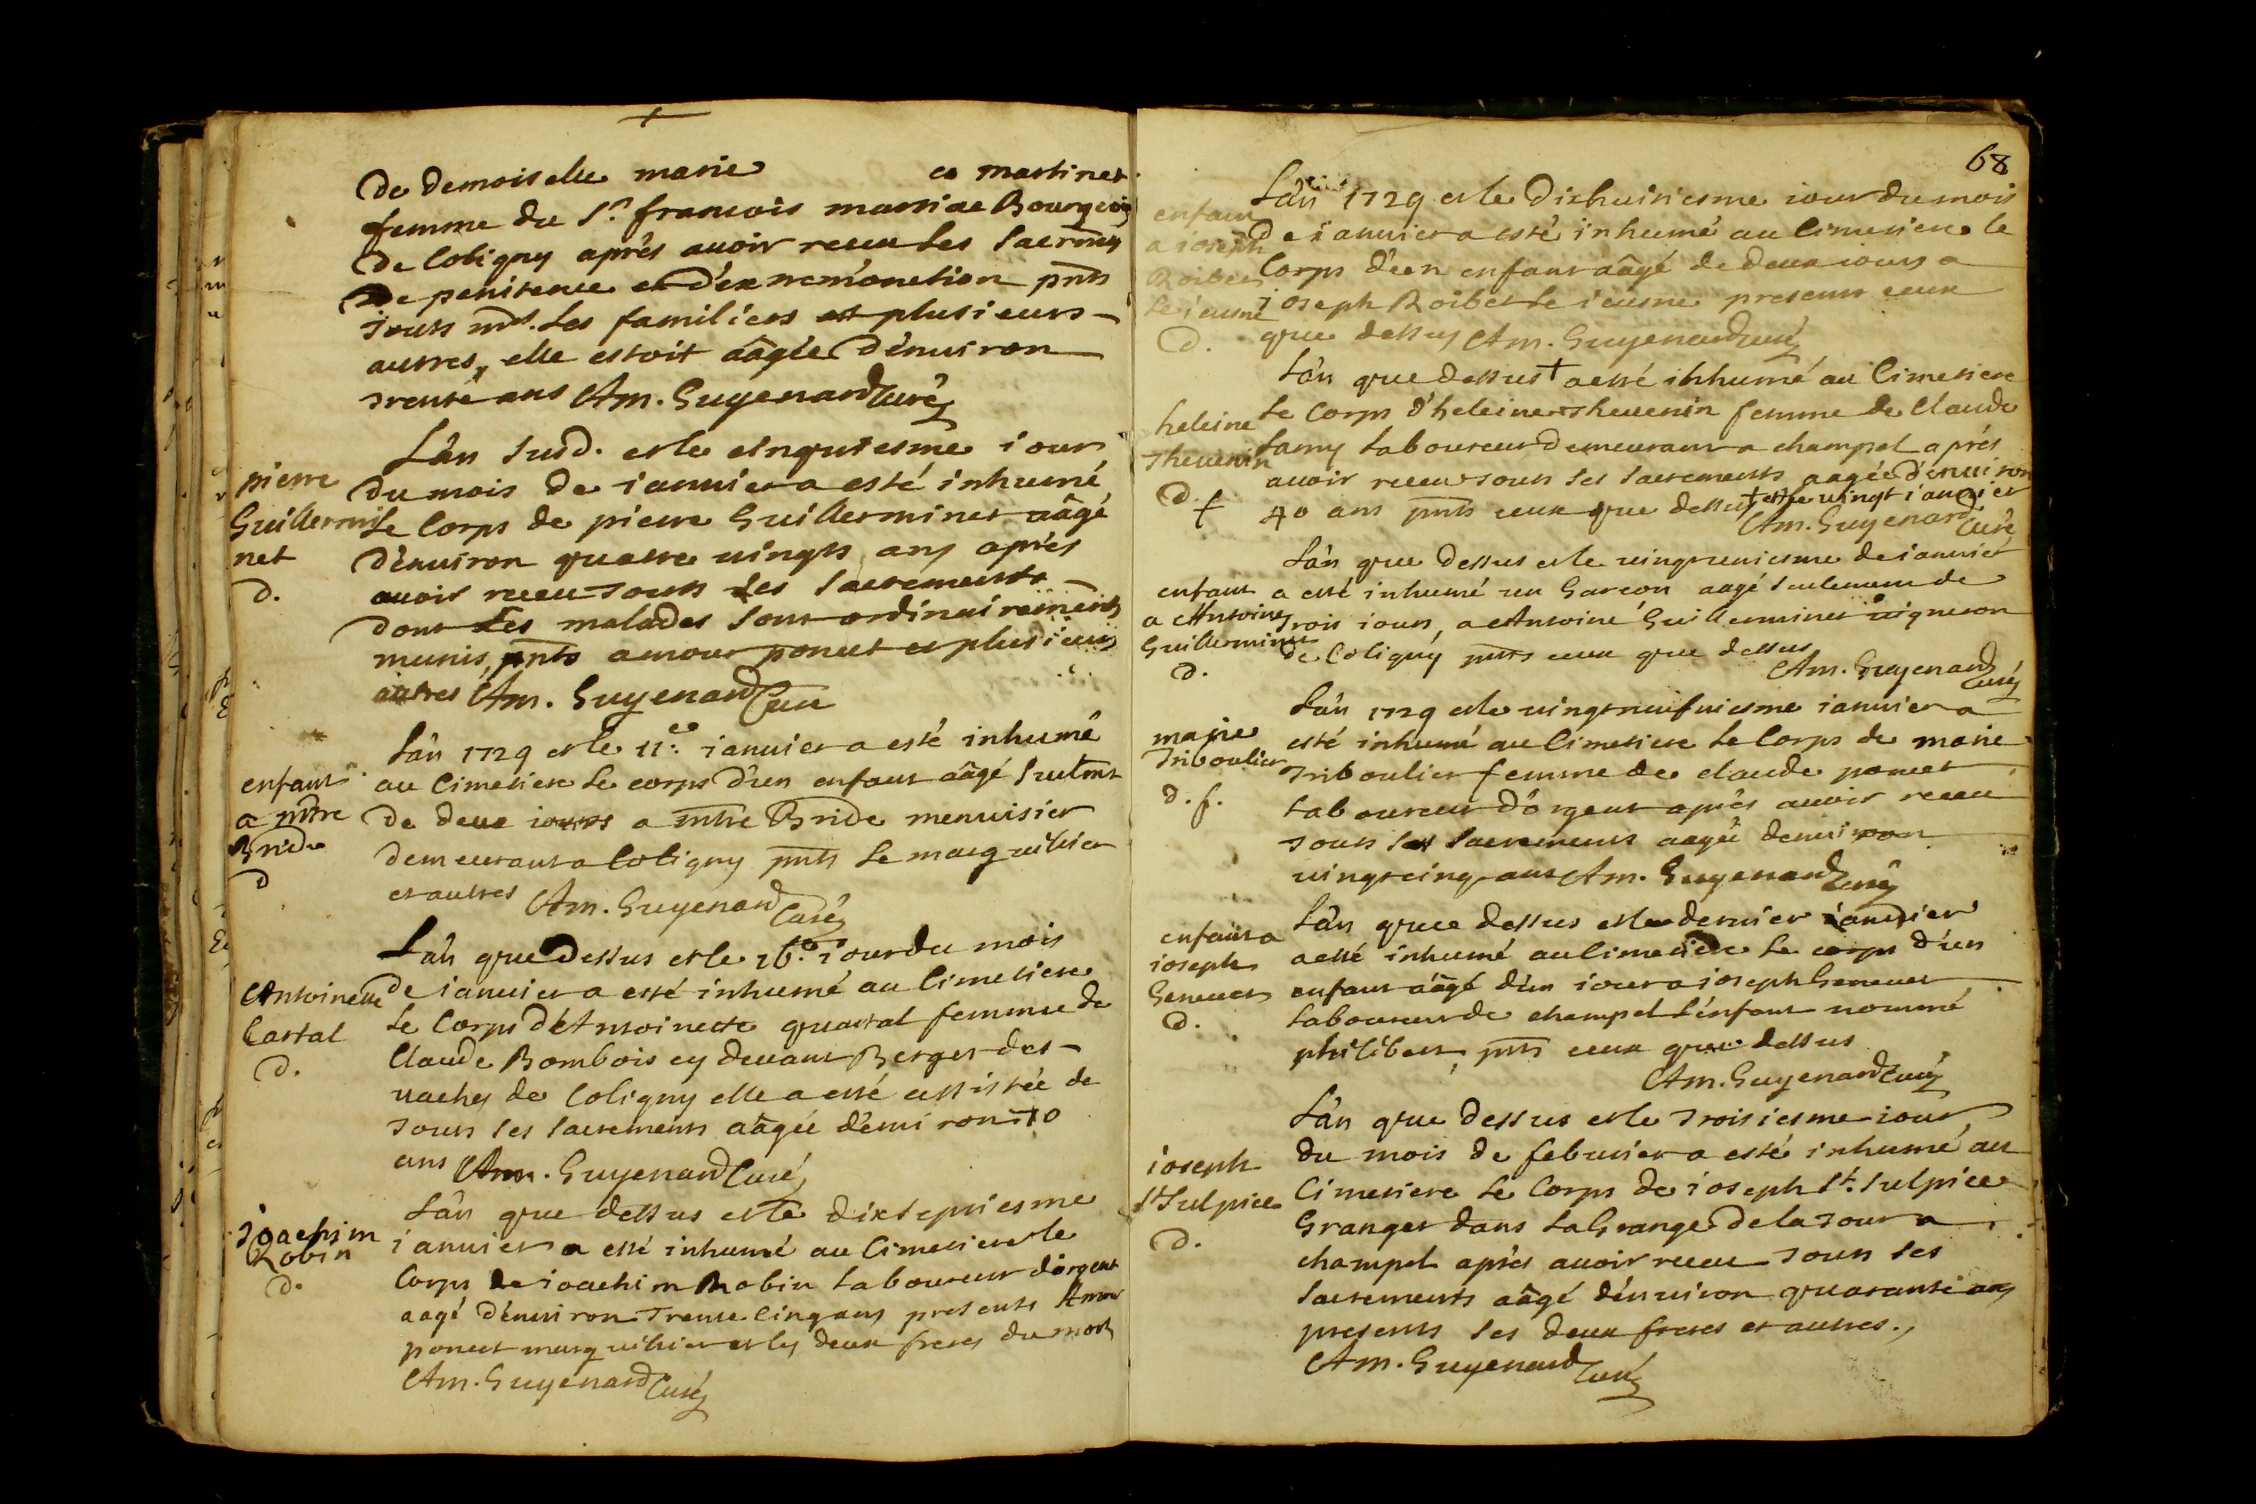 de demoiselle marie ce martinet
femme du Sr. francois martiae Bourgeois
de Coligny aprés auoir receu les Sacrmts
de penitence et d'extremonction pnts
touts mrs. les familiers et plusieurs
autres, elle estoit aâgée d'enuiron
trente ans Am. Guyenard Curé
L'an susd. et le cinquiesme iour
du mois de ianuier a esté inhumé
le Corps de pierre Guillerminet aâgé
d'enuiron quatre uingts ans aprés
auoir receu touts les sacrements
dont les malades sont ordinairements
munis, pnts amour poncet et plusieurs
autres Am. Guyenard Curé
pierre
Guillermi
net
d.
L'an 1729 et le 11e. ianuier a esté inhumé
au Cimetiere le corps d'un enfant aâgé seulmt
de deux iours a mtre Bride menuisier
demeurant a Coligny pnts le marguillier
et autres Am. Guyenard Curé
enfant
a mtre
Bride
d
L'an que dessus et le 16e. iour du mois
de ianuier a esté inhumé au Cimetiere
le Corps d'Antoinette quartal femme de
Claude Bombois cy deuant Berger des
uaches de Coligny elle a esté assistée de
touts les sacrements aâgée d'enuiron 70
ans Am. Guyenard Curé
Antoinette
Cartal
d.
L'an que dessus et le dixseptiesme
ianuier a esté inhumé au Cimetiere le
Corps de ioachim Robin laboureur d'orgent
aagé d'enuiron trente cinq ans presents Amour
poncet marguillier et les deux freres du mort
Am. Guyenard Curé
ioachim
Robin
d.
68
L'an 1729 et le dixhuitiesme iour du mois
de ianuier a esté inhumé au Cimetiere le
Corps d'un enfant aâgé de deux iours a
ioseph Roibet le ieusne presents ceux
que dessus Am. Guyenard curé
enfant
a ioseph
Roibet
le ieusne
d.
L'an que dessus + a esté inhumé au Cimetiere
le Corps d'heleine theuenin femme de Claude
lamy laboureur demeurant a champel aprés
auoir receu touts les sacrements aagée d'enuiron
40 ans pnts ceux que dessus + et le uingt ianuier
Am. Guyenard Curé
heleine
theuenin
d. f
L'an que dessus et le uingtuniesme de ianuier
a esté inhumé un Garcon aagé seulement de
trois iours, a Antoine Guillerminet uigneron
de Coligny pnts ceux que dessus
Am. Guyenard Curé
enfant
a Antoine
Guillerminet
d.
L'an 1729 et le uingtneufuiesme ianuier a
esté inhumé au Cimetiere le Corps de marie
triboulier femme de claude poncet
laboureur d'orgent aprés auoir receu
touts les sacrements aagée denuiron
uingtcinq ans Am. Guyenard Curé
marie
Triboulier
d. f.
L'an que dessus et le dernier ianuier
a esté inhumé au Cimetiere le corps d'un
enfant aâgé d'un iour a ioseph Geneuet
laboureur de champel l'enfant nommé
philibert, pnts ceux que dessus
Am. Guyenard Curé
enfant a
ioseph
Geneuet
d.
L'an que dessus et le troisiesme iour
du mois de feburier a esté inhumé au
Cimetiere le Corps de ioseph St. Sulpice
Granger dans la Grange de la tour a
champel aprés auoir receu touts les
sacrements aâgé d'enuiron quarante ans
presents ses deux freres et autres.,
Am. Guyenard Curé
ioseph
St Sulpice
d.